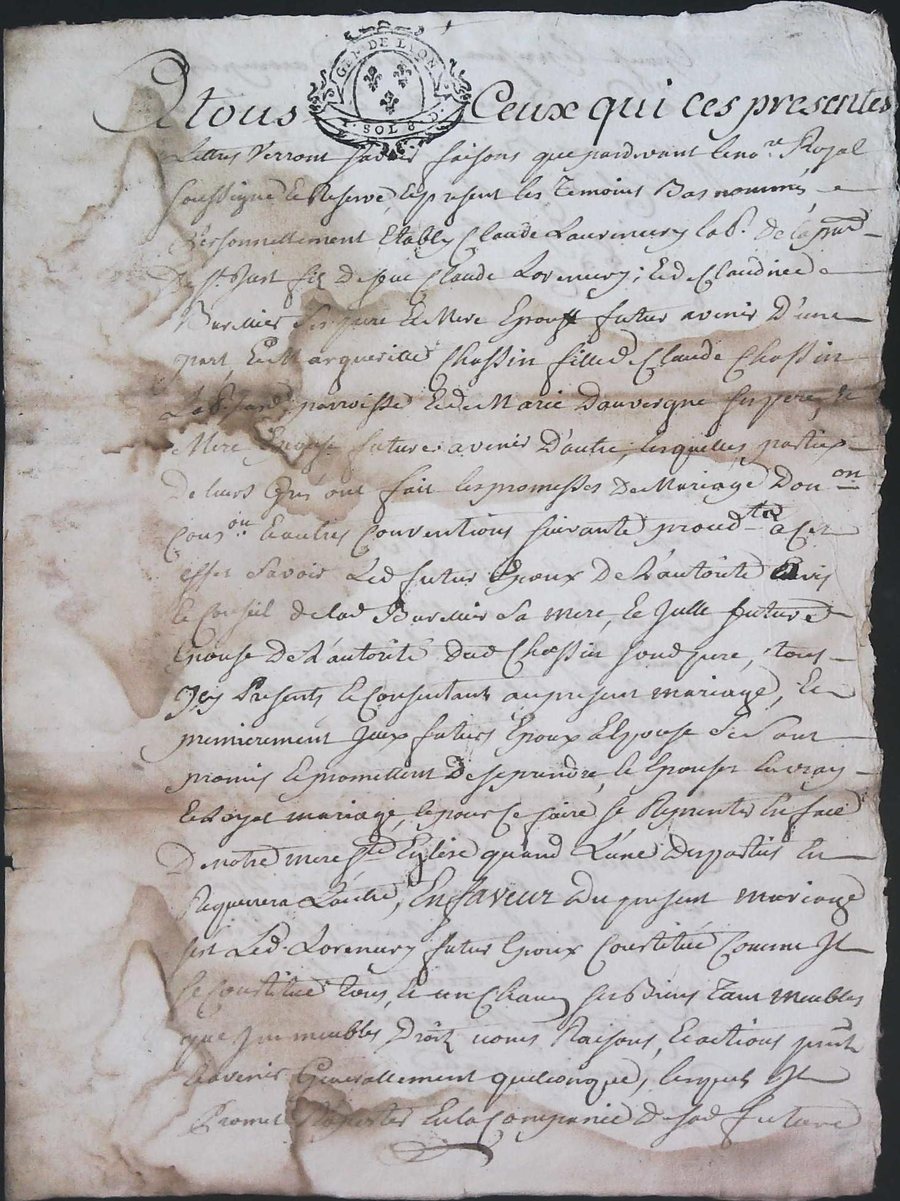 A tous Ceux qui ces presentes
GEN. DE LYON
1 SOL 8 D.
Lettres Verront savoir faisons que pardevant le no.re Royal
soussigné & Reservé, & present les Temoins Bas nommés
Personnellement Etably Claude Laurencery lab.r de la
de st. Just fils de feu Claude Lorencery, & de Claudine
ses pere & Mere Epoux futur avenir D'une
part, & Margueritte Chassin fille de Claude Chassin
parroisse & de Marie Dauvergne ses pere &
Mere Epouse future avenir D'autre, lesquelles parties
De leurs Grés ont fait les promesses De Mariage Don.on
Cons.on & autres Conventions suivante a cet
effet Savoir Led. futur Epoux De L'autorité avis
& Conseil de lad. sa mere, & Julle future
Epouse De L'autorité Dud. Chassin son d. pere, tous
Icy Presents & Consentants au present mariage, &
premierement Iceux futurs Epoux & Epouse se sont
promis & promettent De se prendre, & Epouser en vray
& Loyal mariage, & pour Ce faire se Representer En face
De notre mere ste Eglise quand L'une des parties En
Requerera L'autre, En faveur du present mariage
s'est Led. Lorencery futur Epoux Constitué Comme Il
se Constitue Tous, & un Chacun ses Biens Tant meubles
que Immeubles Droits noms Raisons, & actions
& avenir Generallement quelconques, lesquels Il
Promet Raporter En la Compagnie De sad. future